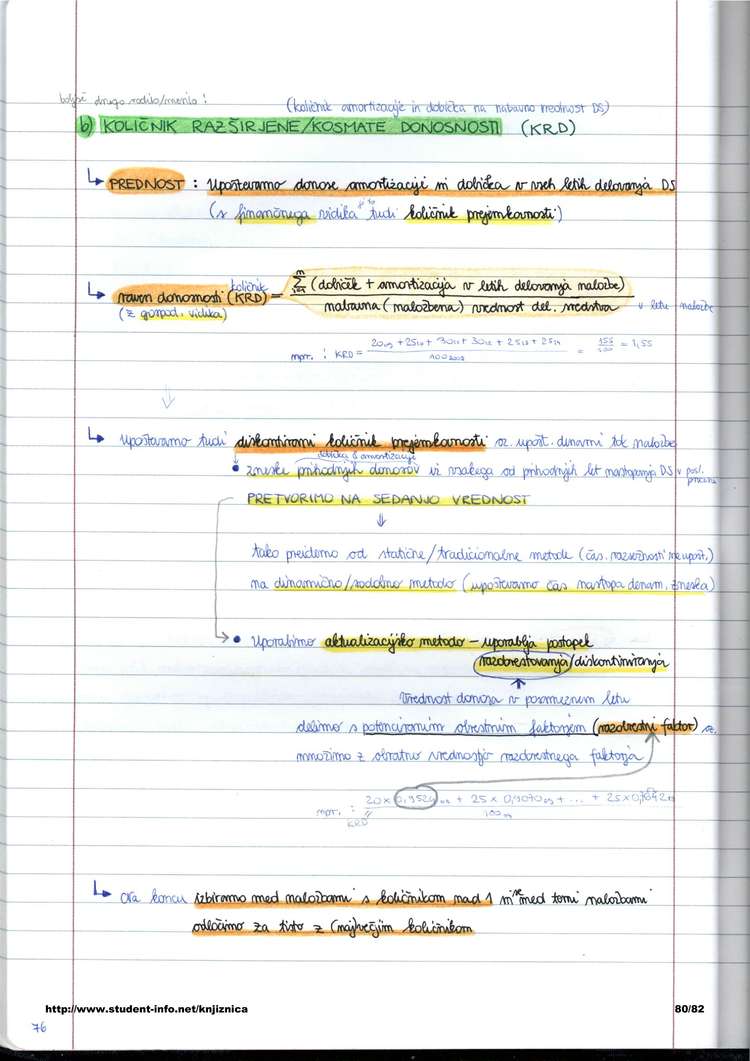 boljše drugo rodilo/merilo :
(količnik amortizacije in dobička na nabavno vrednost DS)
b) KOLIČNIK RAZŠIRJENE/KOSMATE DONOSNOSTI (KRD)
↳ PREDNOST : upoštevamo donose amortizacije in dobička v vseh letih delovanja DS
(s finančnega vidika je to tudi količnik prejemkovnosti)
količnik
↳ raven donosnosti (KRD) = Σ (dobiček + amortizacija v letih delovanja naložbe)
nabavna (naložbena) vrednost del. sredstva v letu naložbe
(z gospod. vidika)
npr. : KRD = 20 + 25 + 30 + 30 + 25 + 25 / 100 = 155/100 = 1,55
↳ Upoštevamo tudi diskontirani količnik prejemkovnosti oz. upošt. denarni tok naložbe
dobička & amortizacije
• zneske prihodnjih donosov iz vsakega od prihodnjih let nastopanja DS v posl. procesu
PRETVORIMO NA SEDANJO VREDNOST
⇓
tako preidemo od statične/tradicionalne metode (čas. razsežnosti ne upošt.)
na dinamično/sodobno metodo (upoštevamo čas nastopa denarn. zneska)
• Uporabimo aktualizacijsko metodo – uporablja postopek
razobrestovanja/diskontiranja
Vrednost donosa v posameznem letu
delimo s potenciranim obrestnim faktorjem (razobrestni faktor) oz.
množimo z obratno vrednostjo razobrestnega faktorja
npr. : KRD = 20 x 0,9524 + 25 x 0,9070 + ... + 25 x 0,7462 / 100
↳ Na koncu izbiramo med naložbami s količnikom nad 1 in se med temi naložbami
odločimo za tisto z (največjim količnikom
http://www.student-info.net/knjiznica
80/82
76